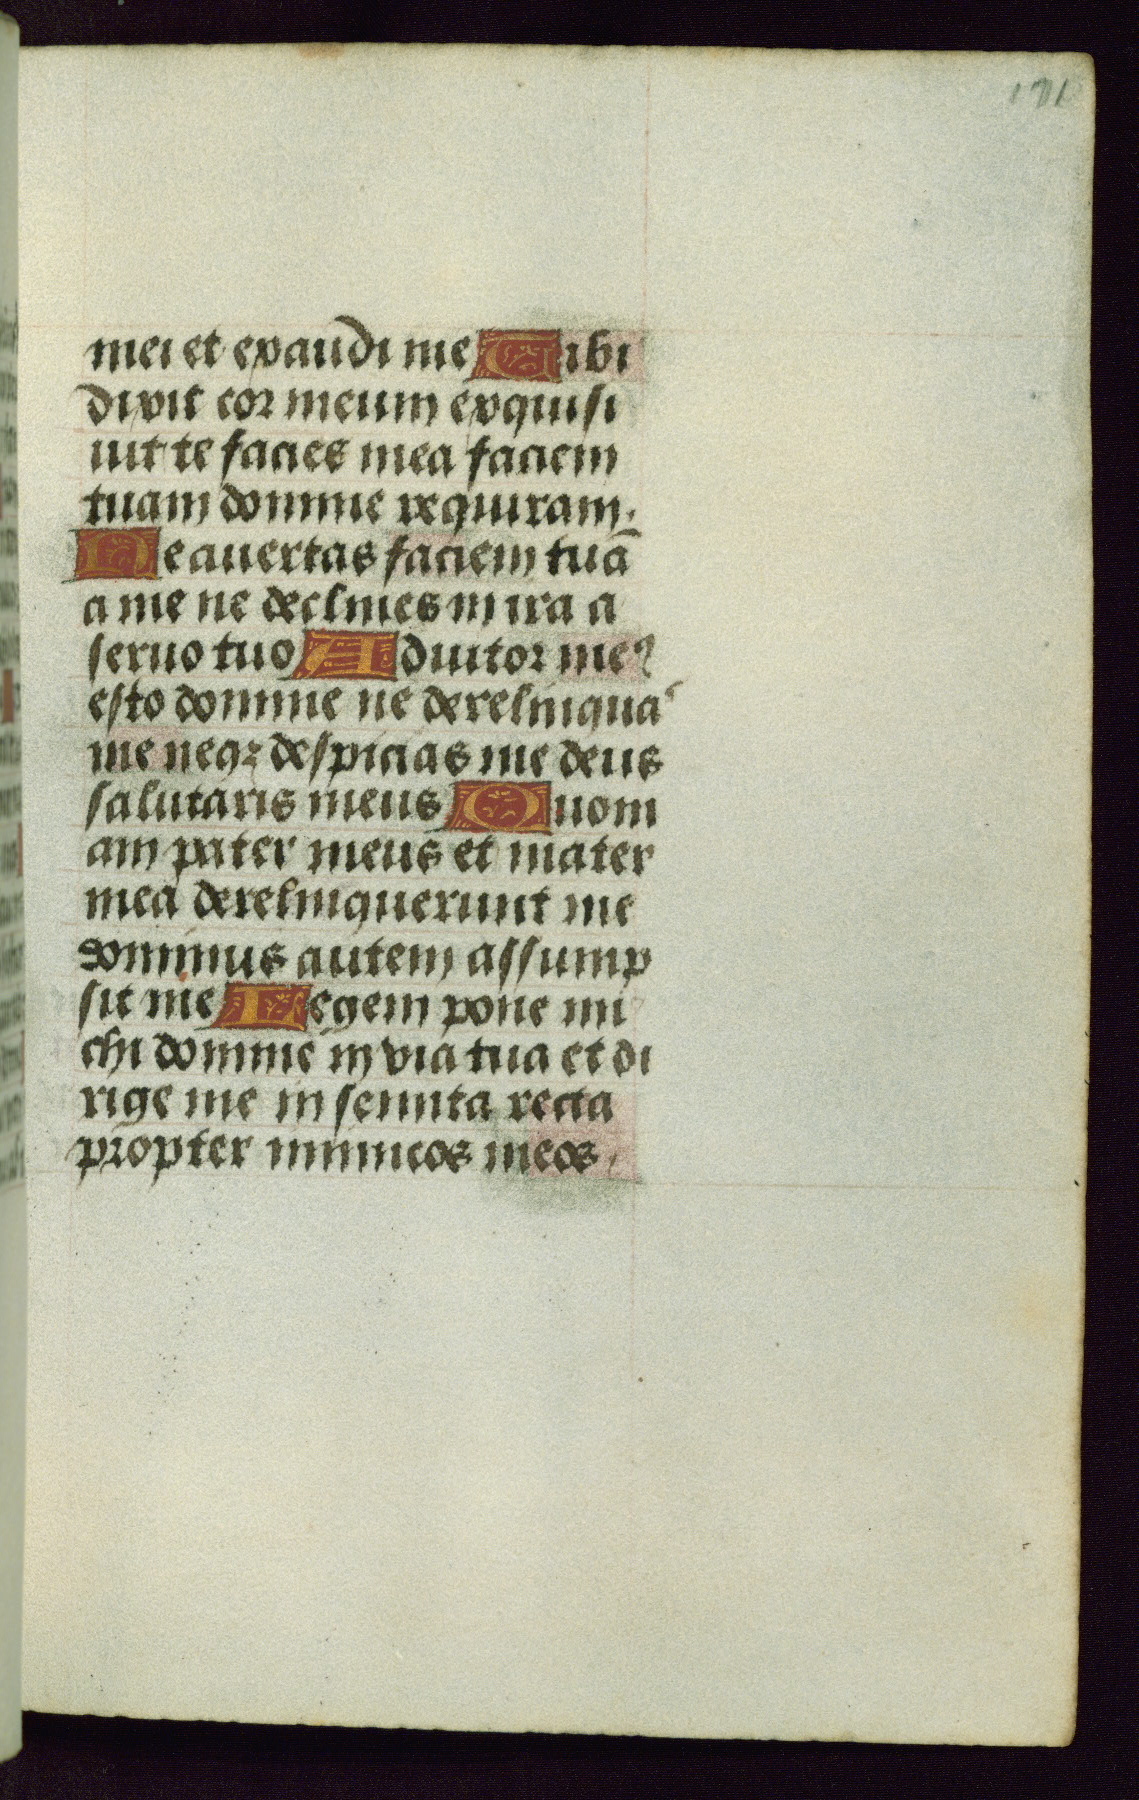 171
mei et exaudi me Tibi
dixit cor meum exquisi
uit te facies mea faciem
tuam domine requiram.
Ne auertas faciem tuā
a me ne declines in ira a
seruo tuo Adiutor meꝰ
esto domine ne derelinquas
me neqꝫ despicias me deus
salutaris meus Quoni
am pater meus et mater
mea derelinquerunt me
dominus autem assump
sit me Legem pone mi
chi domine in via tua et di
rige me in semita recta
propter inimicos meos.